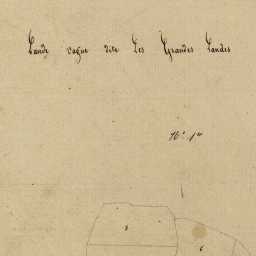 Lande vague dite Les Grandes Landes
N° 1er
8
6